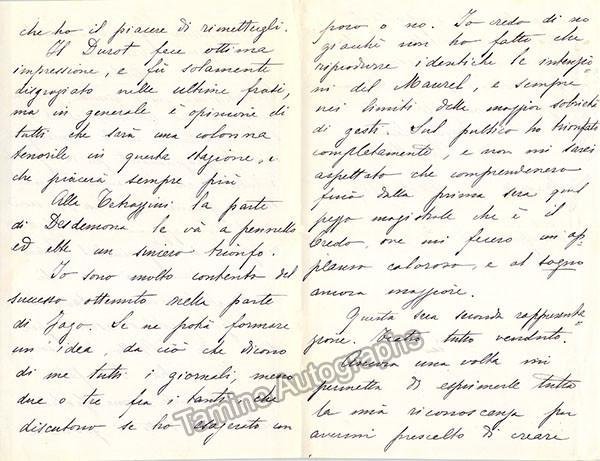 che ho il piacere di rimettergli.
Il Durot fece ottima
impressione, e fù solamente
disgraziato nelle ultime frasi,
ma in generale è opinione di
tutti che sarà una colonna
tenorile in questa stagione, e
che piacerà sempre più
Alla Tetrazzini la parte
di Desdemona le và a pennello
ed ebbe un sincero trionfo.
Io sono molto contento del
successo ottenuto nella parte
di Jago. Se ne potrà formare
un'idea, da ciò che dicono
di me tutti i giornali, meno
due o tre fra i tanti, che
discutono se ho esagerato un
poco o no. Io credo di no
giacchè non ho fatto che
riprodurre identiche le intenzio
ni del Maurel, e sempre
nei limiti della maggior sobrietà
di gesti. Sul pubblico ho trionfato
completamente, e non mi sarei
aspettato che comprendessero
fino dalla prima sera quel
pezzo magistrale che è il
Credo, ove mi fecero un'ap-
plauso caloroso, e al sogno
ancora maggiore.
Questa sera seconda rappresenta
zione. Teatro tutto venduto."
Ancora una volta mi
permetta di esprimerle tutta
la mia riconoscenza per
avermi prescelto di creare
Tamino Autographs